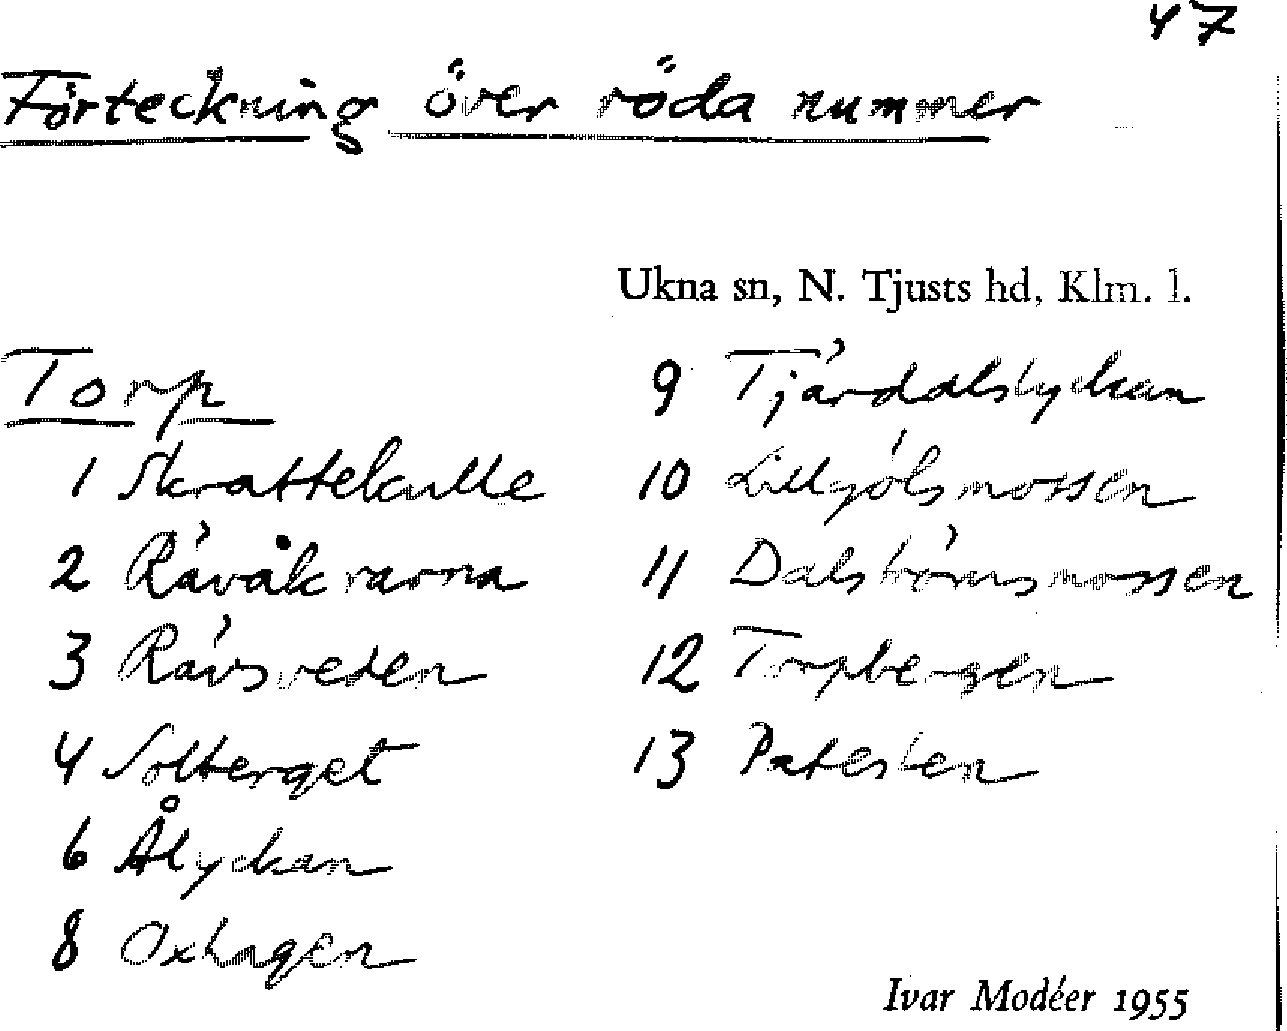 47
Förteckning över röda nummer
Ukna sn, N. Tjusts hd, Klm. l.
Torp
1 Skrattekulle
2 Råvåkrarna
3 Rävsveden
4 Solberget
6 Ålyckan
8 Oxhagen
9 Tjärdalslyckan
10 Lillgölsmossen
11 Dalströmsmossen
12 Torpbergen
13
Ivar Modéer 1955